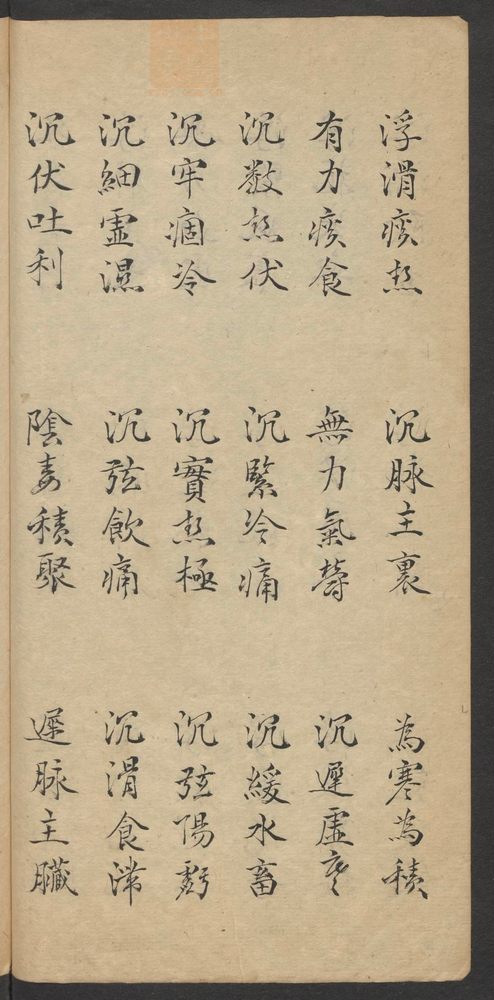 浮滑痰热 沉脉主裏 為寒為積
有力痰食 無力氣欝 沉遲虛寒
沉數热伏 沉緊冷痛 沉緩水畜
沉牢痼冷 沉實热極 沉弦陽虧
沉細霊濕 沉弦飲痛 沉滑食滞
沉伏吐利 陰毒積聚 遲脉主臟